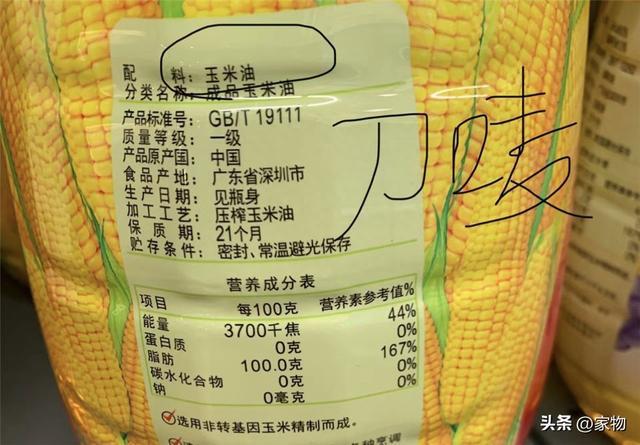 配 料：玉米油
分类名称：成品玉米油
产品标准号：GB/T 19111
质量等级：一级
产品原产国：中国
食品产地：广东省深圳市
生产日期：见瓶身
加工工艺：压榨玉米油
保质期：21个月
贮存条件：密封、常温避光保存
刀唛
营养成分表
项目 每100克 营养素参考值%
能量 3700千焦 44%
蛋白质 0克 0%
脂肪 100.0克 167%
碳水化合物 0克 0%
钠 0毫克 0%
选用非转基因玉米精制而成。
头条 @家物